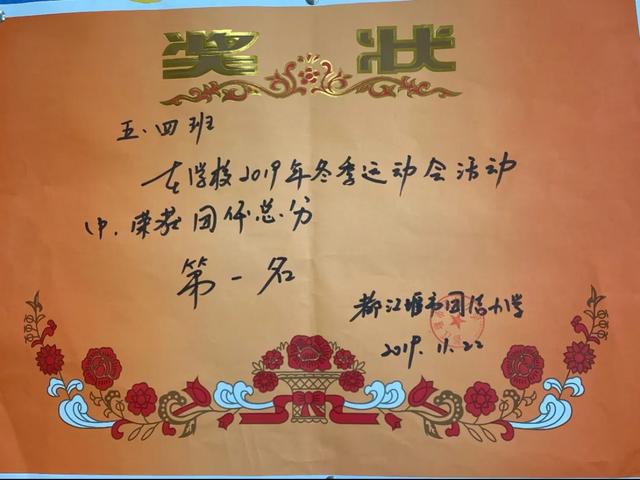 奖状
五.四班
在学校2019年冬季运动会活动
中.荣获团体总分
第一名
都江堰市团结小学
2019.11.22